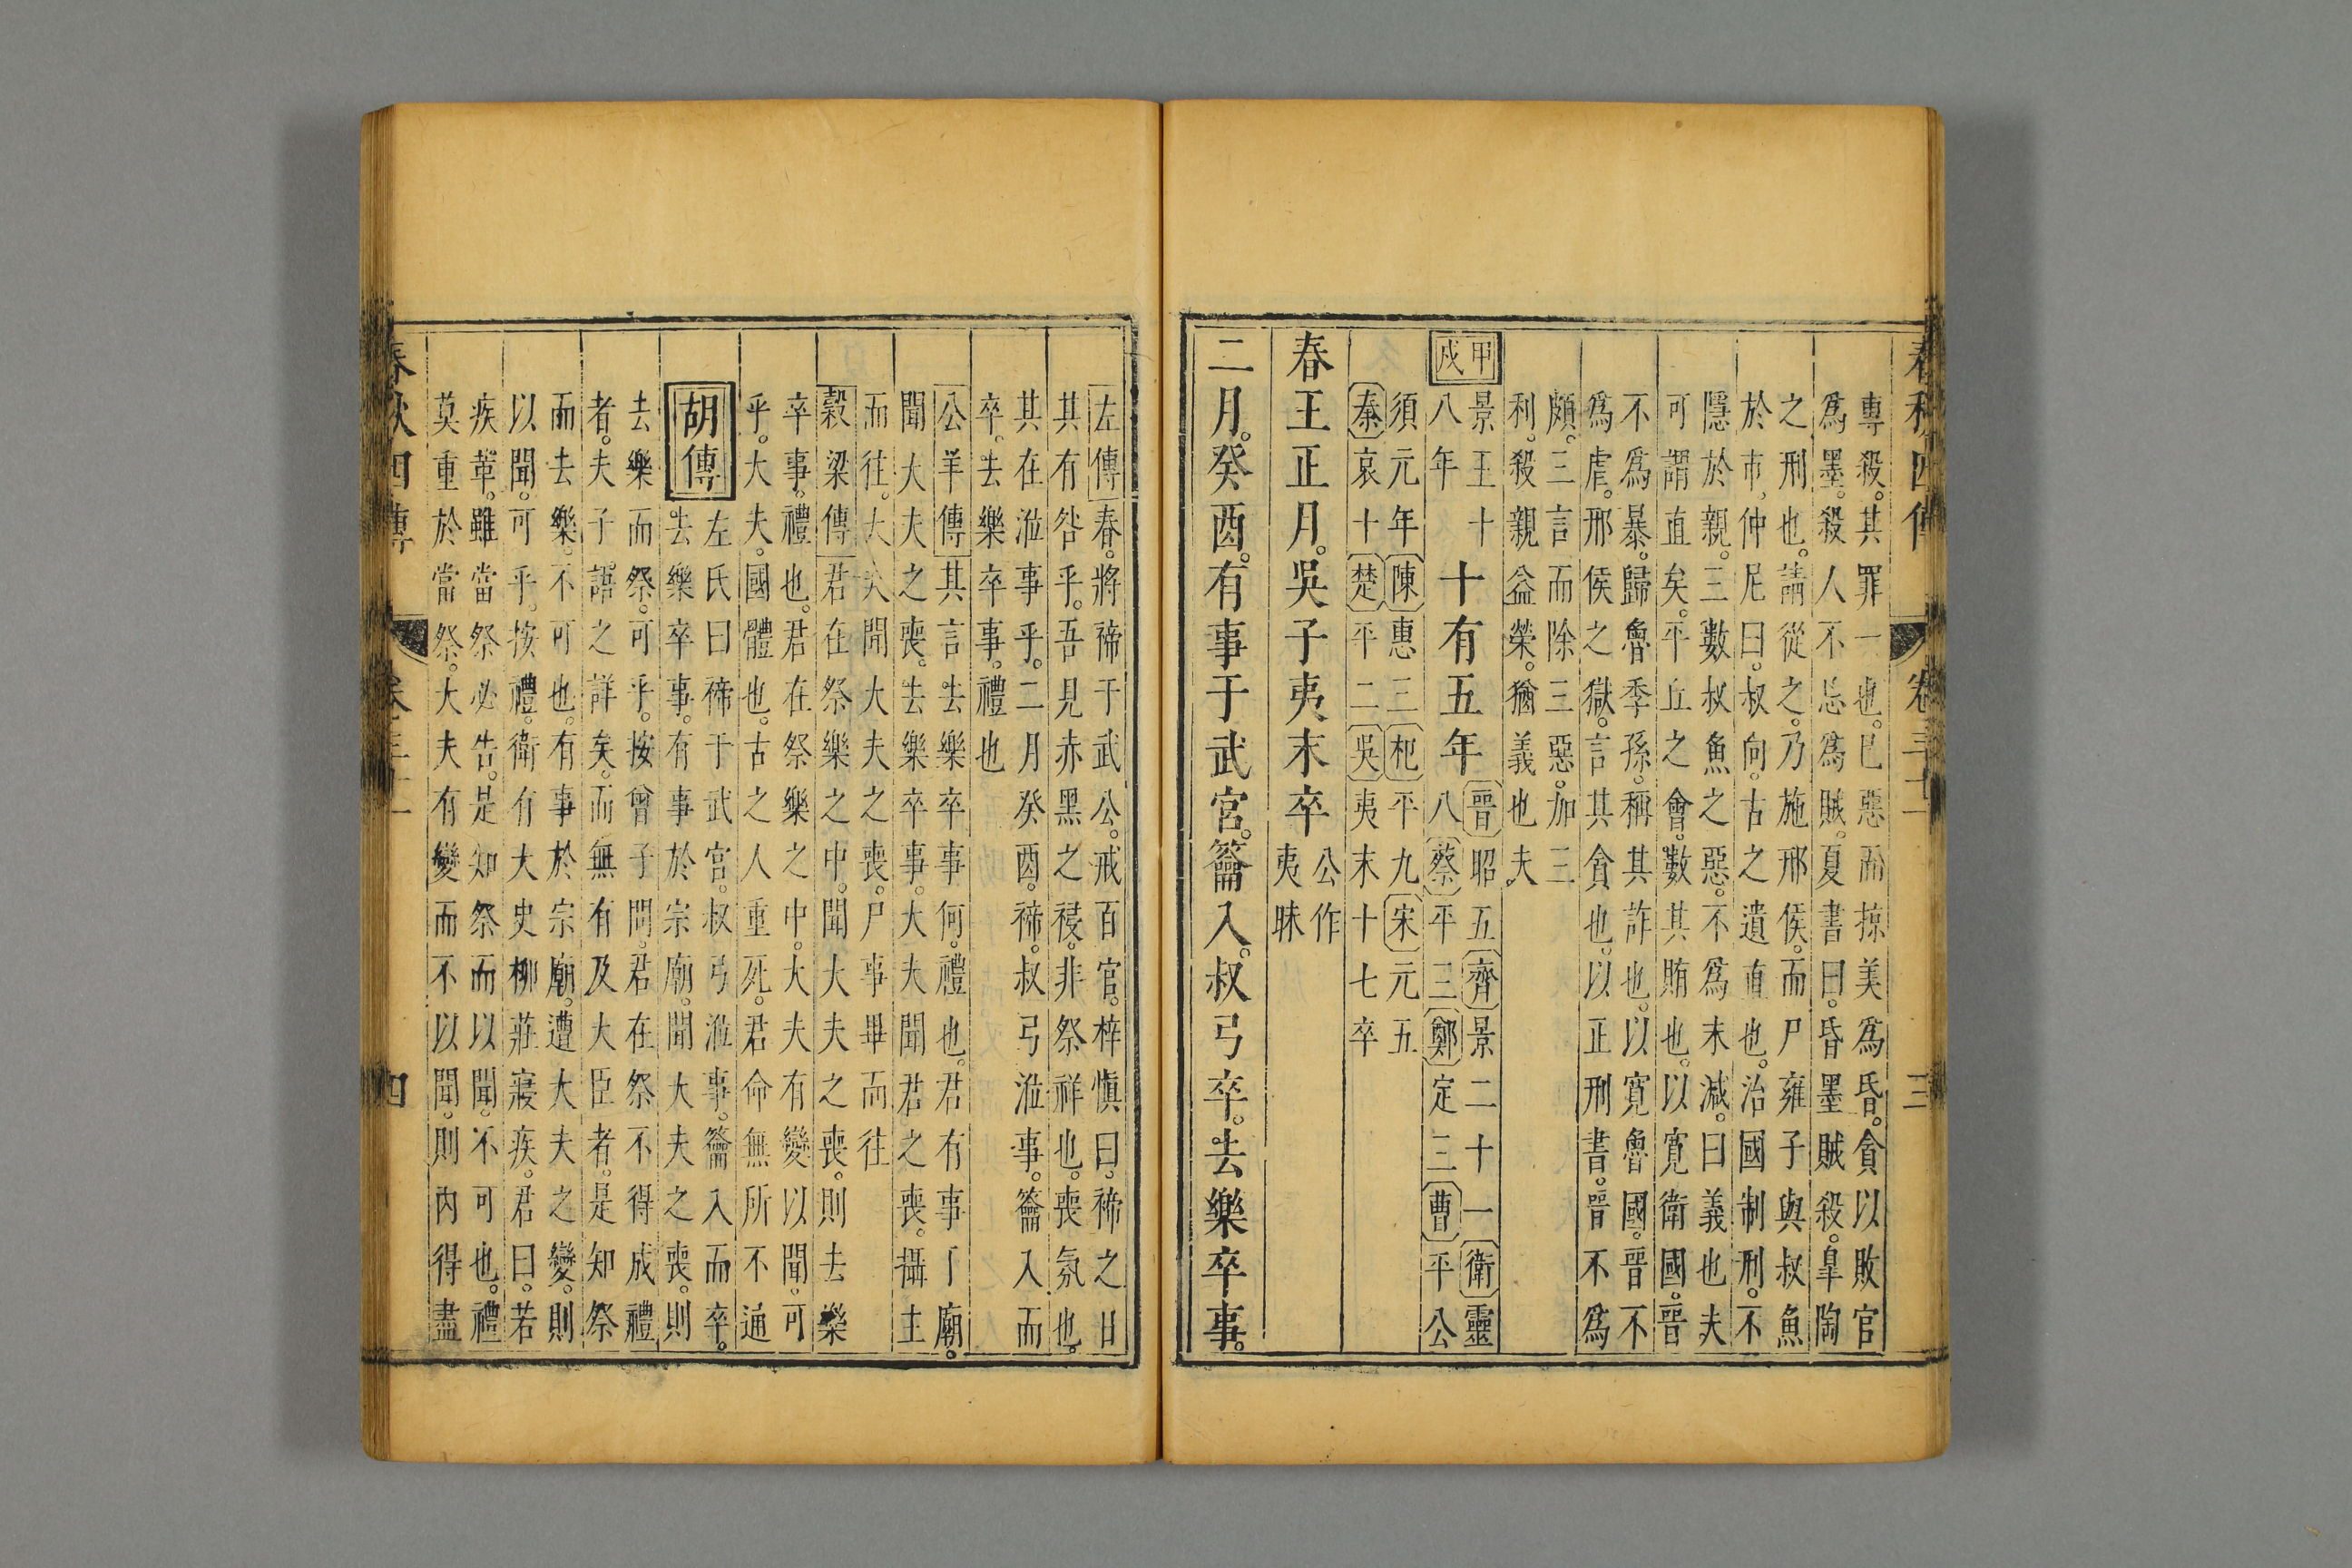 專殺其罪一也已惡而掠美爲昏貪以敗官
爲墨殺人不忌爲賊夏書曰昏墨賊殺皐陶
之刑也請從之乃施邢侯而尸雍子與叔魚
於市仲尼曰叔向古之遺直也治國制刑不
隱於親三數叔魚之惡不爲末減曰義也夫
可謂直矣平丘之會數其賄也以寛衛國晉
不爲暴歸魯季孫稱其詐也以寛魯國晉不
爲虐邢侯之獄言其貪也以正刑書晉不爲
頗三言而除三惡加三
利殺親益榮猶義也夫
甲戌
景王十八年
十有五年
晉昭五齊景二十一衛靈
八蔡平三鄭定三曹平公
須元年陳惠三杞平九宋元五
秦哀十楚平二吳夷末十七卒
春王正月吳子夷末卒
公作
夷昧
二月癸酉有事于武宮籥入叔弓卒去樂卒事
春秋四傳 卷三十二 三
左傳春將禘于武公戒百官梓慎曰禘之日
其有咎乎吾見赤黑之祲非祭祥也喪氛也
其在涖事乎二月癸酉禘叔弓涖事籥入而
卒去樂卒事禮也
公羊傳其言去樂卒事何禮也君有事于廟
聞大夫之喪去樂卒事大夫聞君之喪攝主
而往大夫聞大夫之喪尸事畢而往
穀梁傳君在祭樂之中聞大夫之喪則去樂
卒事禮也君在祭樂之中大夫有變以聞可
乎大夫國體也古之人重死君命無所不通
胡傳
左氏曰禘于武宮叔弓涖事籥入而卒
去樂卒事有事於宗廟聞大夫之喪則
去樂而祭可乎按曾子問君在祭不得成禮
者夫子語之詳矣而無有及大臣者是知祭
而去樂不可也有事於宗廟遭大夫之變則
以聞可乎按禮衛有大史柳莊寢疾君曰若
疾革雖當祭必告是知祭而以聞不可也禮
莫重於當祭大夫有變而不以聞則內得盡
春秋四傳 卷三十二 四